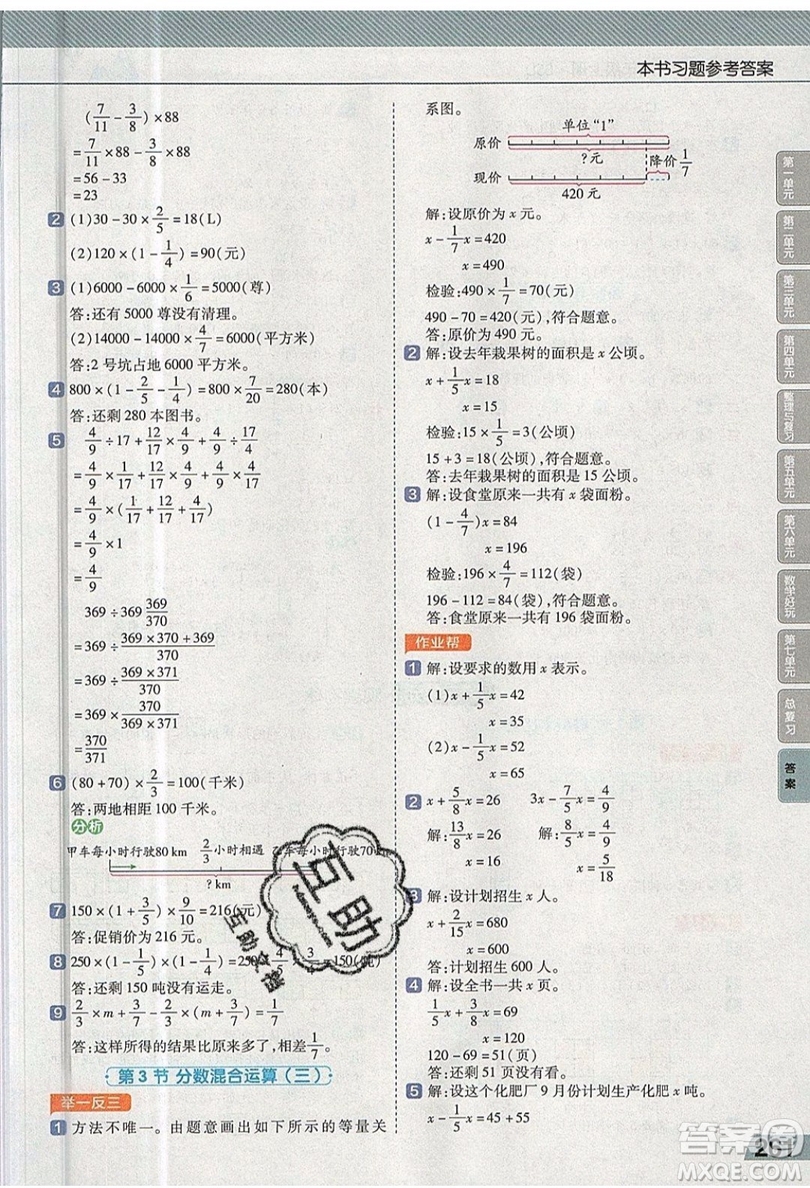 本书习题参考答案
(7/11-3/8)×88
=7/11×88-3/8×88
=56-33
=23
2 (1)30-30×2/5=18(L)
(2)120×(1-1/4)=90(元)
3 (1)6000-6000×1/6=5000(尊)
答:还有 5000 尊没有清理。
(2)14000-14000×4/7=6000(平方米)
答:2 号坑占地 6000 平方米。
4 800×(1-2/5-1/4)=800×7/20=280(本)
答:还剩 280 本图书。
5 4/9÷17+12/17×4/9+4/9÷17/4
=4/9×(1/17+12/17+4/17)
=4/9×1
=4/9
369÷369 369/370
=369÷(369×370+369)/370
=369÷(369×371)/370
=369×370/(369×371)
=370/371
6 (80+70)×2/3=100(千米)
答:两地相距 100 千米。
分析
甲车每小时行驶80 km 2/3小时相遇 乙车每小时行驶70
? km
7 150×(1+3/5)×9/10=216(元)
答:促销价为 216 元。
8 250×(1-1/5)×(1-1/4)=250×4/5×3/4=150(吨)
答:还剩 150 吨没有运走。
9 2/3×m+3/7-2/3×(m+3/7)=1/7
答:这样所得的结果比原来多了,相差1/7。
第 3 节 分数混合运算(三)
举一反三
1 方法不唯一。由题意画出如下所示的等量关
系图。
单位“1”
原价
?元 降价1/7
现价
420 元
解:设原价为 x 元。
x-1/7x=420
x=490
检验:490×1/7=70(元)
490-70=420(元),符合题意。
答:原价为 490 元。
2 解:设去年栽果树的面积是 x 公顷。
x+1/5x=18
x=15
检验:15×1/5=3(公顷)
15+3=18(公顷),符合题意。
答:去年栽果树的面积是 15 公顷。
3 解:设食堂原来一共有 x 袋面粉。
(1-4/7)x=84
x=196
检验:196×4/7=112(袋)
196-112=84(袋),符合题意。
答:食堂原来一共有 196 袋面粉。
作业帮
1 解:设要求的数用 x 表示。
(1)x+1/5x=42
x=35
(2)x-1/5x=52
x=65
2 x+5/8x=26 3x-7/5x=4/9
解:13/8x=26 解:8/5x=4/9
x=16 x=5/18
3 解:设计划招生 x 人。
x+2/15x=680
x=600
答:计划招生 600 人。
4 解:设全书一共 x 页。
1/5x+3/8x=69
x=120
120-69=51(页)
答:还剩 51 页没有看。
5 解:设这个化肥厂 9 月份计划生产化肥 x 吨。
x-1/5x=45+55
第一单元
第二单元
第三单元
第四单元
整理与复习
第五单元
第六单元
数学好玩
第七单元
总复习
答案
互助
互助文档
答案圈
MXQE.COM